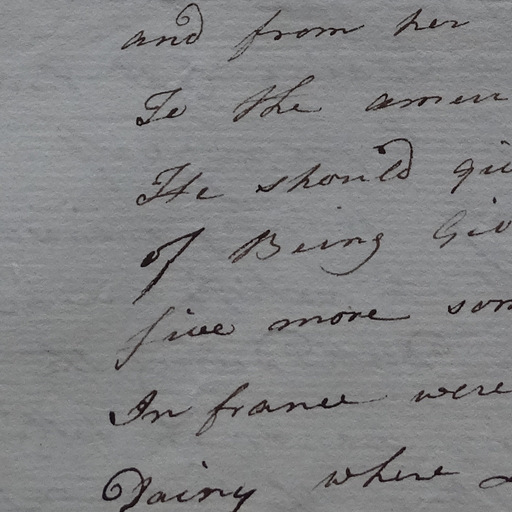 and from her
To the amer
He should gi
of Being Giv
five more som
In france were
Dainy where